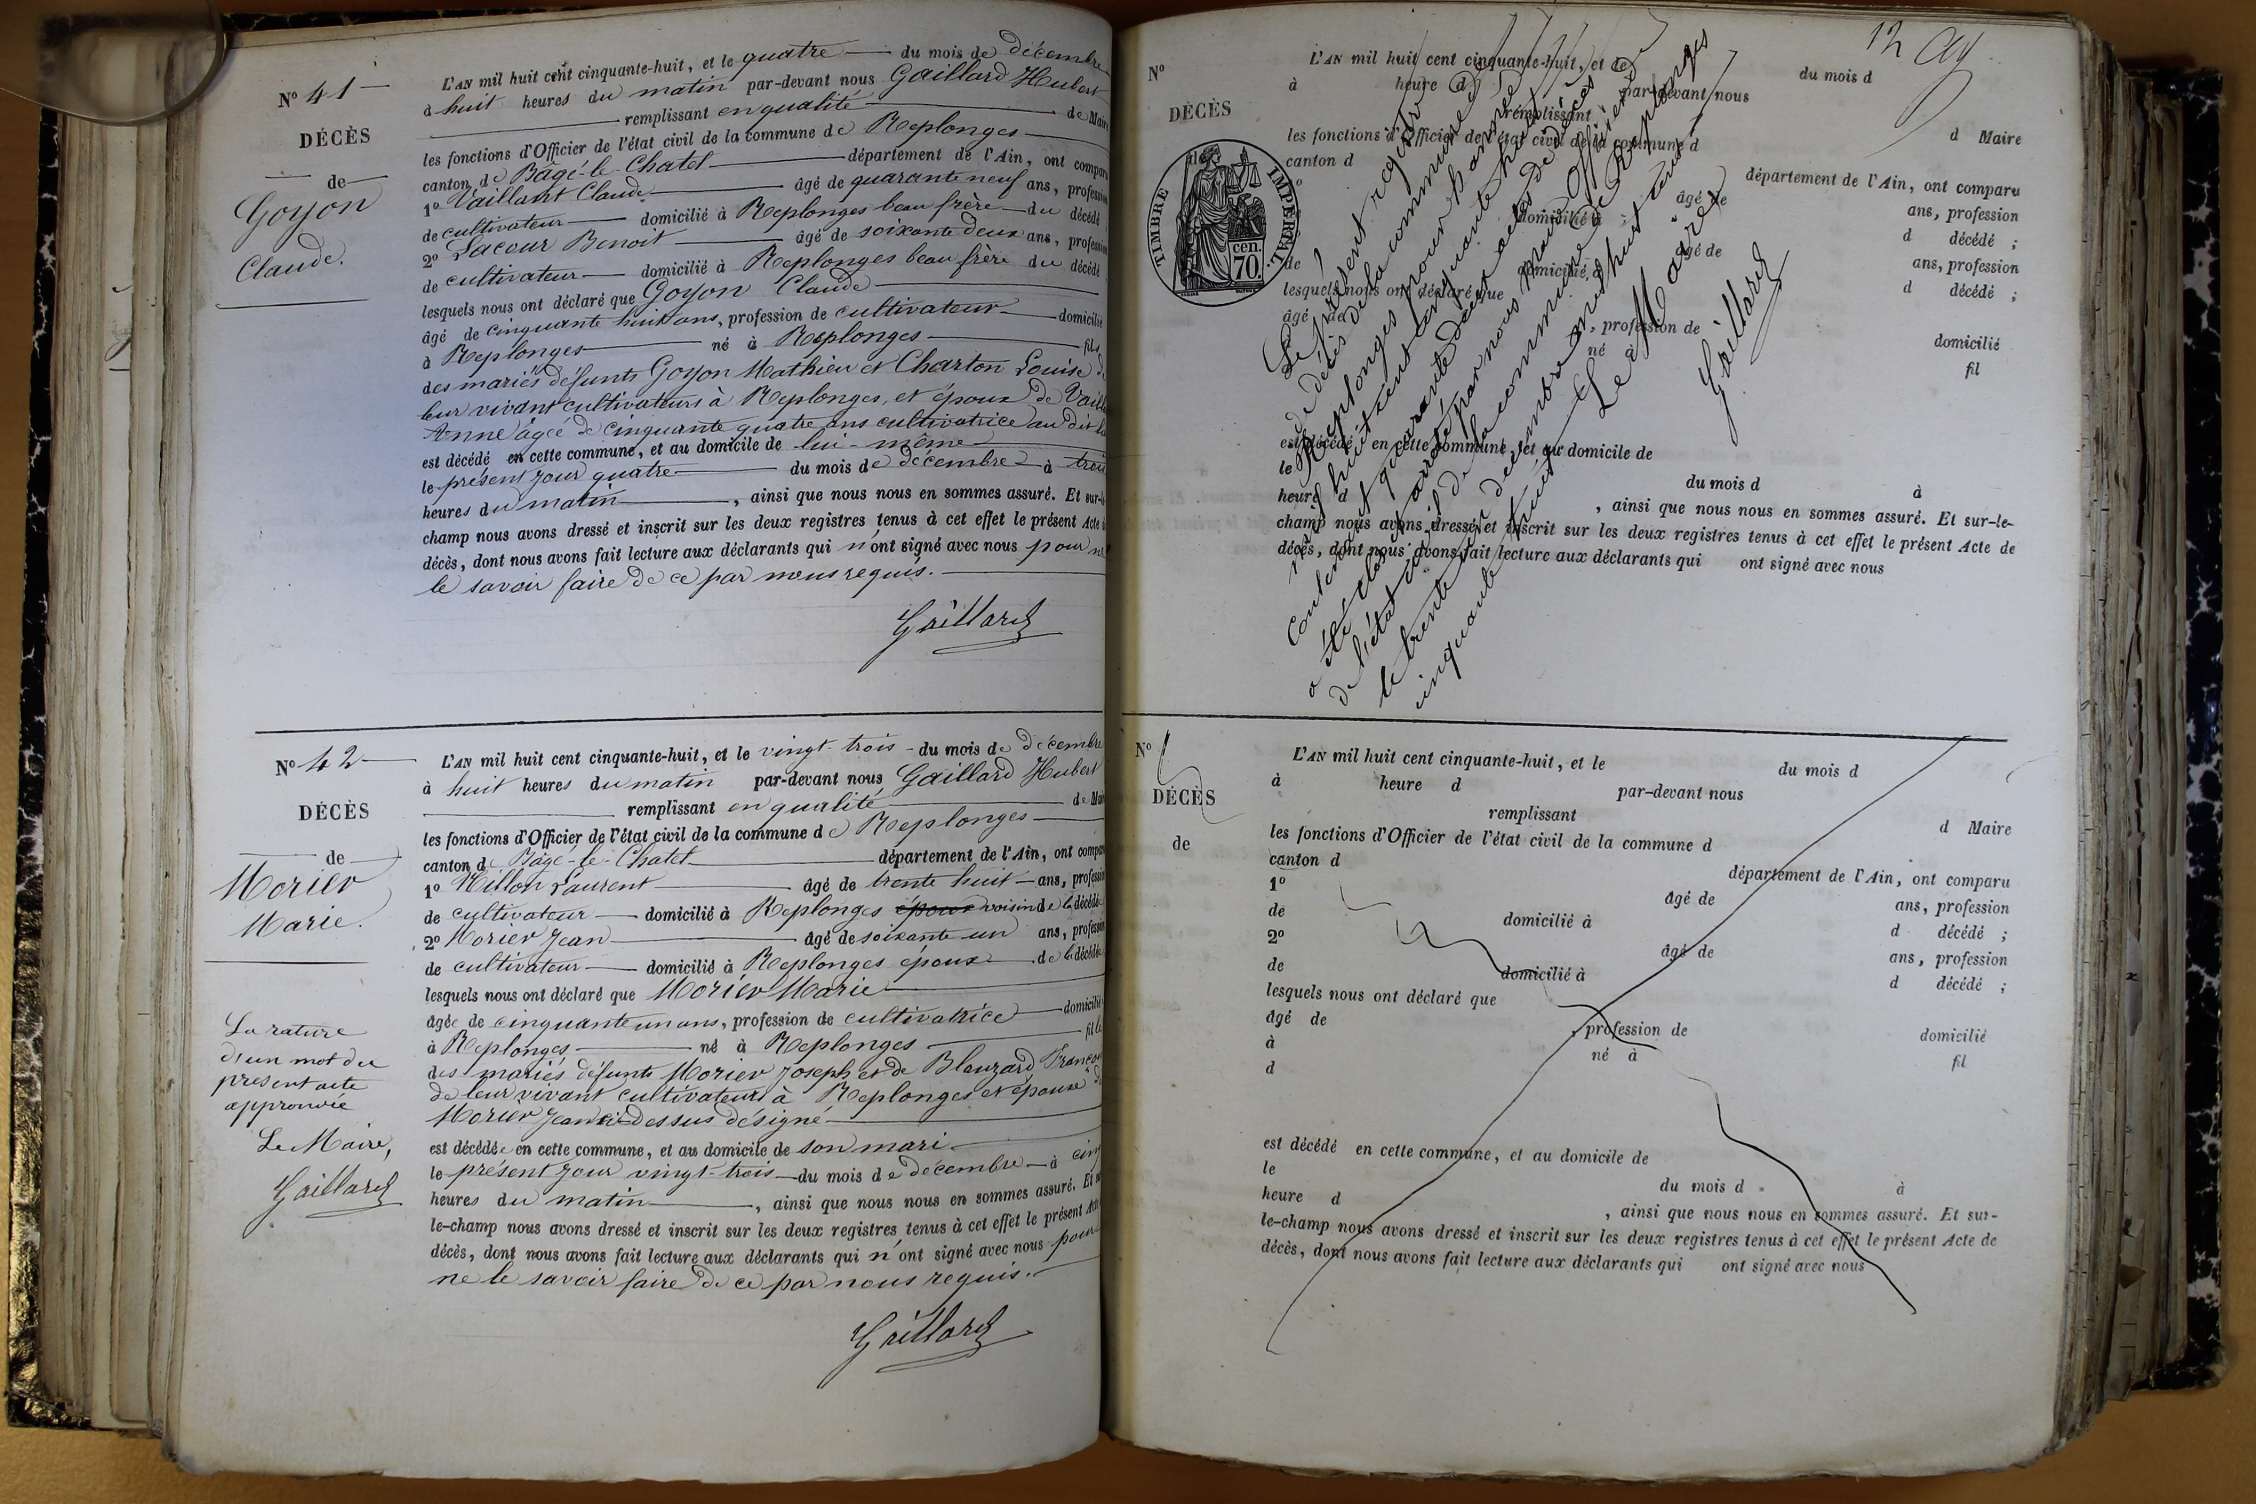 N° 41
DÉCÈS
de
Goyon
Claude.
L'AN mil huit cent cinquante-huit, et le quatre du mois de décembre
à huit heures du matin par-devant nous Gaillard Hubert
remplissant en qualité de Maire
les fonctions d'Officier de l'état civil de la commune de Replonges
canton de Bâgé-le-Chatel département de l'Ain, ont comparu
1° Vaillant Claude âgé de quarante neuf ans, profession
de cultivateur domicilié à Replonges beau frère du décédé
2° Lacour Benoit âgé de soixante deux ans, profession
de cultivateur domicilié à Replonges beau frère du décédé
lesquels nous ont déclaré que Goyon Claude
âgé de cinquante huit ans, profession de cultivateur domicilié
à Replonges né à Replonges fils
des mariés défunts Goyon Mathieu et Charton Louise de
leur vivant cultivateurs à Replonges, et époux de Vaill
Anne âgée de cinquante quatre ans cultivatrice au dit
est décédé en cette commune, et au domicile de lui-même
le présent jour quatre du mois de décembre à trois
heures du matin, ainsi que nous nous en sommes assuré. Et sur-le-
champ nous avons dressé et inscrit sur les deux registres tenus à cet effet le présent Acte
décès, dont nous avons fait lecture aux déclarants qui n'ont signé avec nous pour ne
le savoir faire de ce par nous requis.
Gaillard
N° 42
DÉCÈS
de
Morier
Marie.
La rature
d'un mot du
présent acte
approuvée
Le Maire,
Gaillard
L'AN mil huit cent cinquante-huit, et le vingt-trois du mois de décembre
à huit heures du matin par-devant nous Gaillard Hubert
remplissant en qualité de Maire
les fonctions d'Officier de l'état civil de la commune de Replonges
canton de Bâgé-le-Chatel département de l'Ain, ont comparu
1° Millon Laurent âgé de trente huit ans, profession
de cultivateur domicilié à Replonges époux voisin de la décédée
2° Morier Jean âgé de soixante un ans, profession
de cultivateur domicilié à Replonges époux de la décédée
lesquels nous ont déclaré que Morier Marie
âgée de cinquante un ans, profession de cultivatrice domicilié
à Replonges né à Replonges fille
des mariés défunts Morier Joseph et de Blauzard
de leur vivant cultivateurs à Replonges et épouse de
Morier Jean ci-dessus désigné
est décédée en cette commune, et au domicile de son mari
le présent jour vingt-trois du mois de décembre à cinq
heures du matin, ainsi que nous nous en sommes assuré. Et
le-champ nous avons dressé et inscrit sur les deux registres tenus à cet effet le présent Acte
décès, dont nous avons fait lecture aux déclarants qui n'ont signé avec nous pour
ne le savoir faire de ce par nous requis.
Gaillard
12
N°
DÉCÈS
de
TIMBRE IMPÉRIAL.
70 cen.
L'AN mil huit cent cinquante-huit, et le du mois d
à heure d par-devant nous
remplissant d Maire
les fonctions d'Officier de l'état civil de la commune d
canton d département de l'Ain, ont comparu
âgé de ans, profession
domicilié à d décédé ;
âgé de ans, profession
de domicilié à d décédé ;
lesquels nous ont déclaré que
âgé de , profession de domicilié
né à fil
est décédé en cette commune, et au domicile de
le du mois d à
heure d , ainsi que nous nous en sommes assuré. Et sur-le-
champ nous avons dressé et inscrit sur les deux registres tenus à cet effet le présent Acte de
décès, dont nous avons fait lecture aux déclarants qui ont signé avec nous
Le présent registre
de décès de la commune de
Replonges pour l'année
mil huit cent cinquante huit
contenant quarante deux actes de décès
a été clos et arrêté par nous Maire Officier
de l'état civil de la commune de Replonges
le trente un décembre mil huit cent
cinquante huit
Le Maire
Gaillard
N°
DÉCÈS
de
L'AN mil huit cent cinquante-huit, et le du mois d
à heure d par-devant nous
remplissant d Maire
les fonctions d'Officier de l'état civil de la commune d
canton d département de l'Ain, ont comparu
1° âgé de ans, profession
de domicilié à d décédé ;
2° âgé de ans, profession
de domicilié à d décédé ;
lesquels nous ont déclaré que
âgé de , profession de domicilié
à né à fil
d
est décédé en cette commune, et au domicile de
le du mois d à
heure d , ainsi que nous nous en sommes assuré. Et sur-
le-champ nous avons dressé et inscrit sur les deux registres tenus à cet effet le présent Acte de
décès, dont nous avons fait lecture aux déclarants qui ont signé avec nous